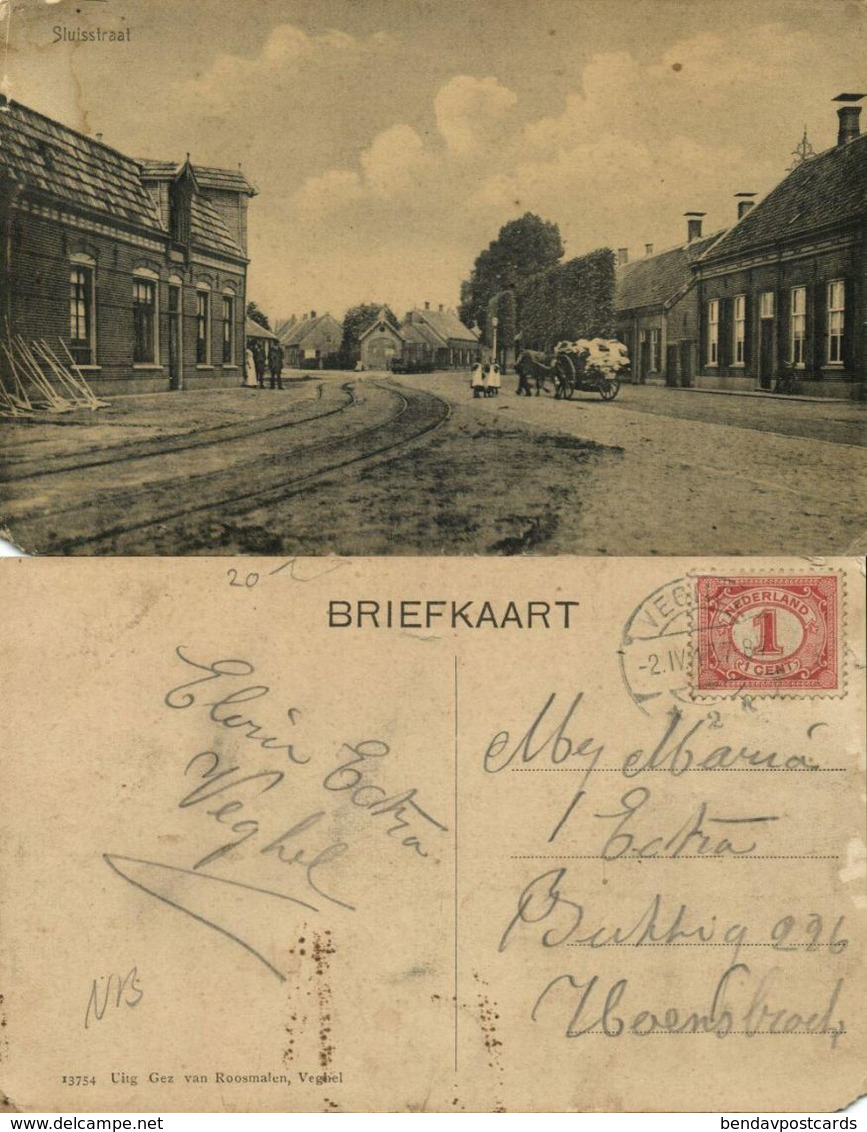 Sluisstraat
20
BRIEFKAART
NEDERLAND
1
1 CENT
VEGH
-2.IV
2
Elvir Ectra
Veghel
Mej Maria
Ectra
226
Hoensbroek
NB
13754 Uitg Gez van Roosmalen, Veghel
www.delcampe.net
bendavpostcards